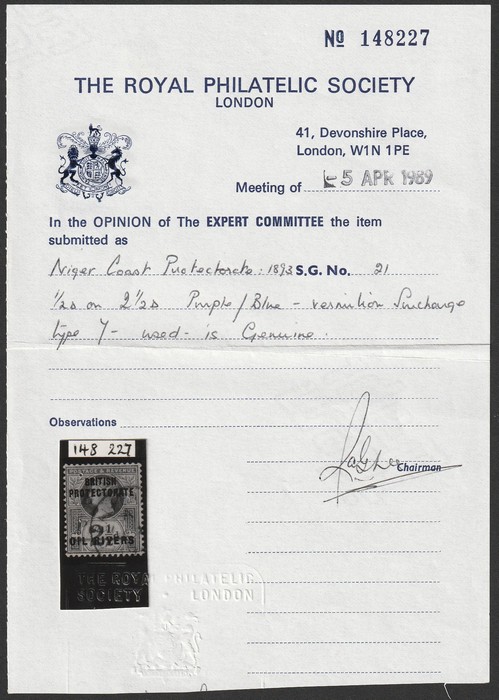 No 148227
THE ROYAL PHILATELIC SOCIETY
LONDON
41, Devonshire Place,
London, W1N 1PE
Meeting of -5 APR 1989
In the OPINION of The EXPERT COMMITTEE the item
submitted as
Niger Coast Protectorate: 1893 S.G. No. 21
½d on 2½d Purple/Blue - vermilion Surcharge
type 7 - used - is Genuine.
Observations
Chairman
148 227
POSTAGE & REVENUE
BRITISH
PROTECTORATE
OIL RIVERS
THE ROYAL PHILATELIC
SOCIETY · LONDON